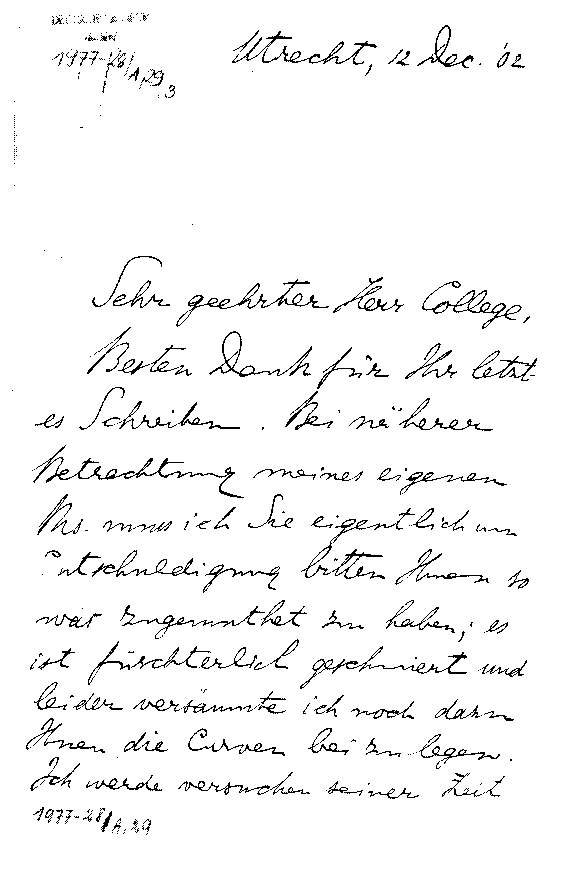 1977-28/A,29,3
Utrecht, 12 Dec. '02
Sehr geehrter Herr College,
Besten Dank für Ihr letzt-
es Schreiben. Bei näherer
Betrachtung meines eigenen
Ms. muss ich Sie eigentlich um
Entschuldigung bitten Ihnen so
was zugemuthet zu haben; es
ist fürchterlich geschmiert und
leider versäumte ich noch dazu
Ihnen die Curven bei zu legen.
Ich werde versuchen seiner Zeit
1977-28/A,29